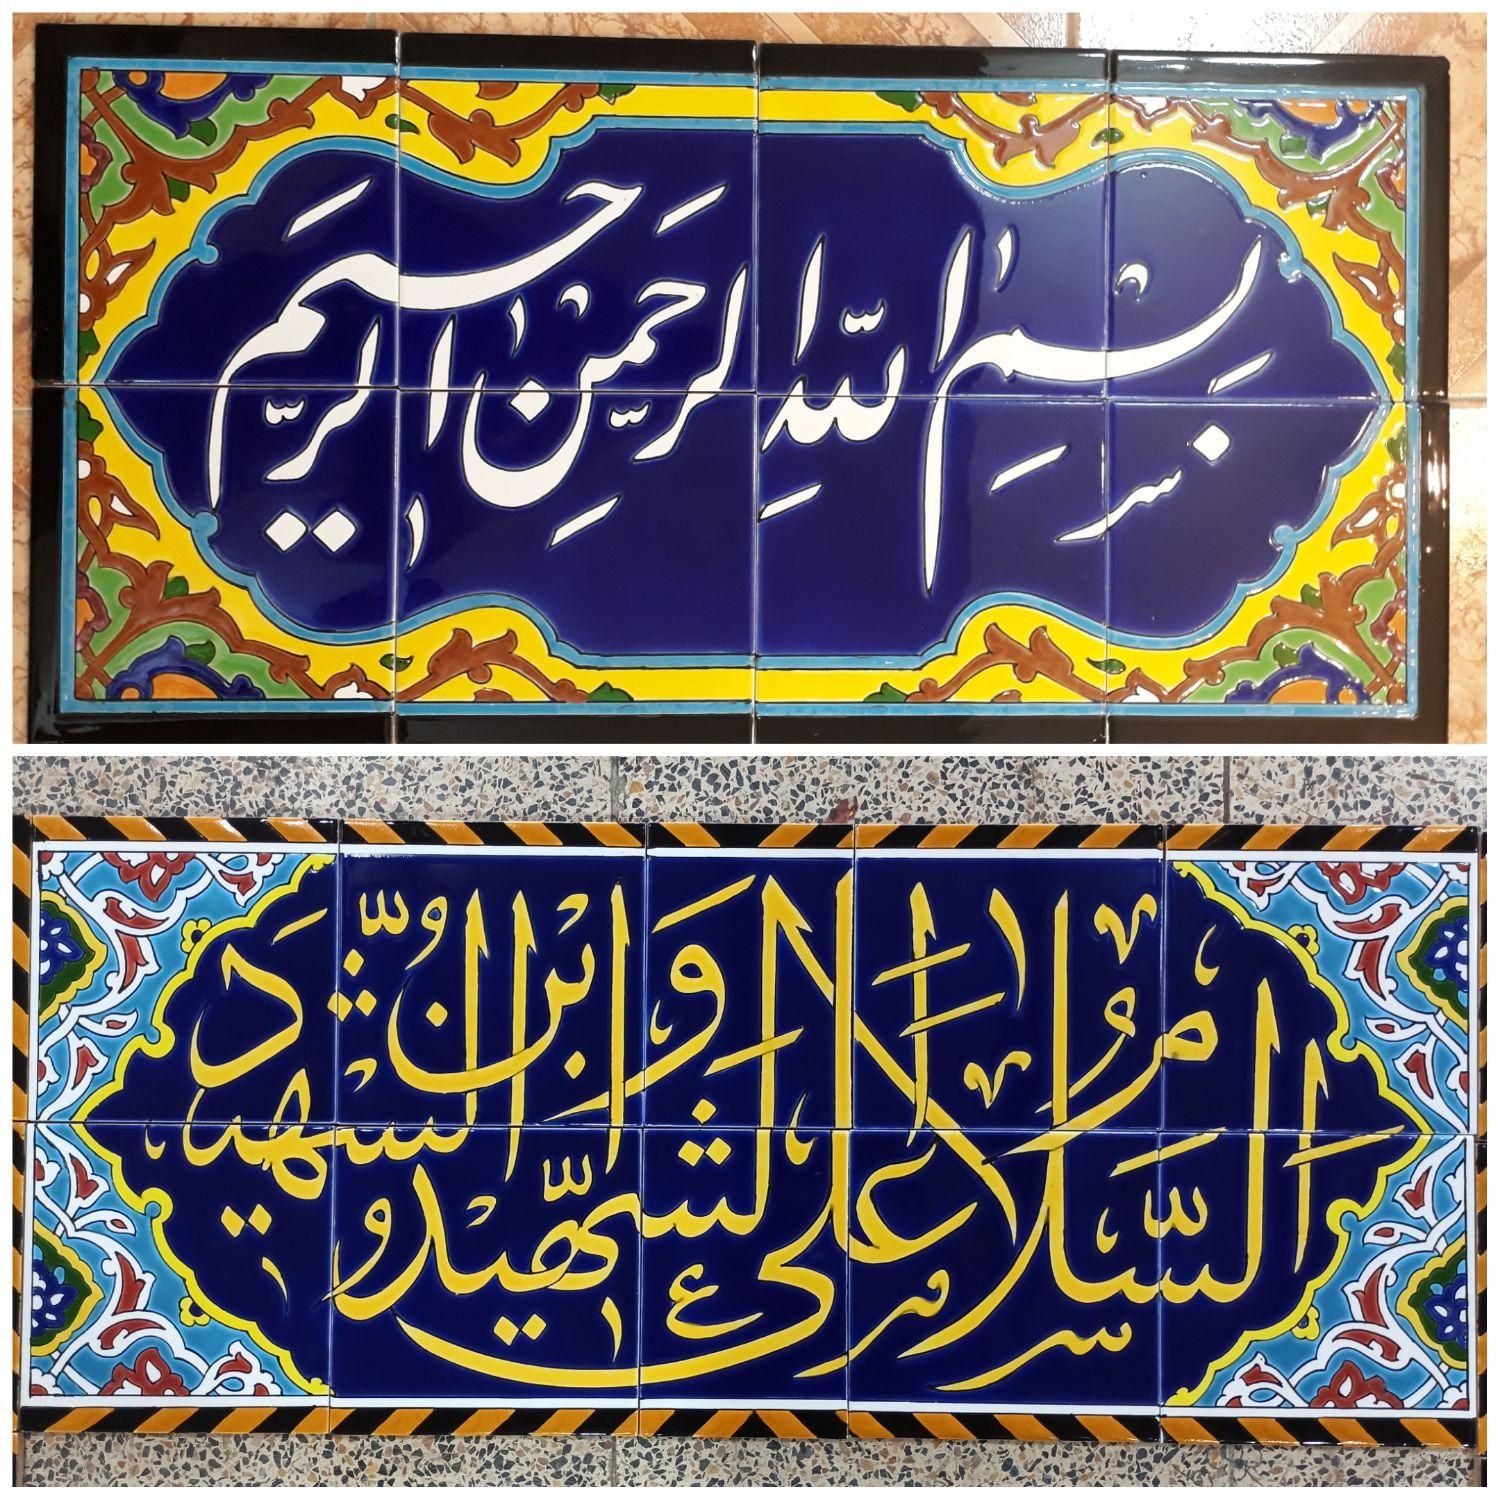 بِسْمِ اللهِ الرَّحْمنِ الرَّحِیم
اَلسَّلامُ عَلَی الشَّهیدِ وَابْنُ الشَّهید